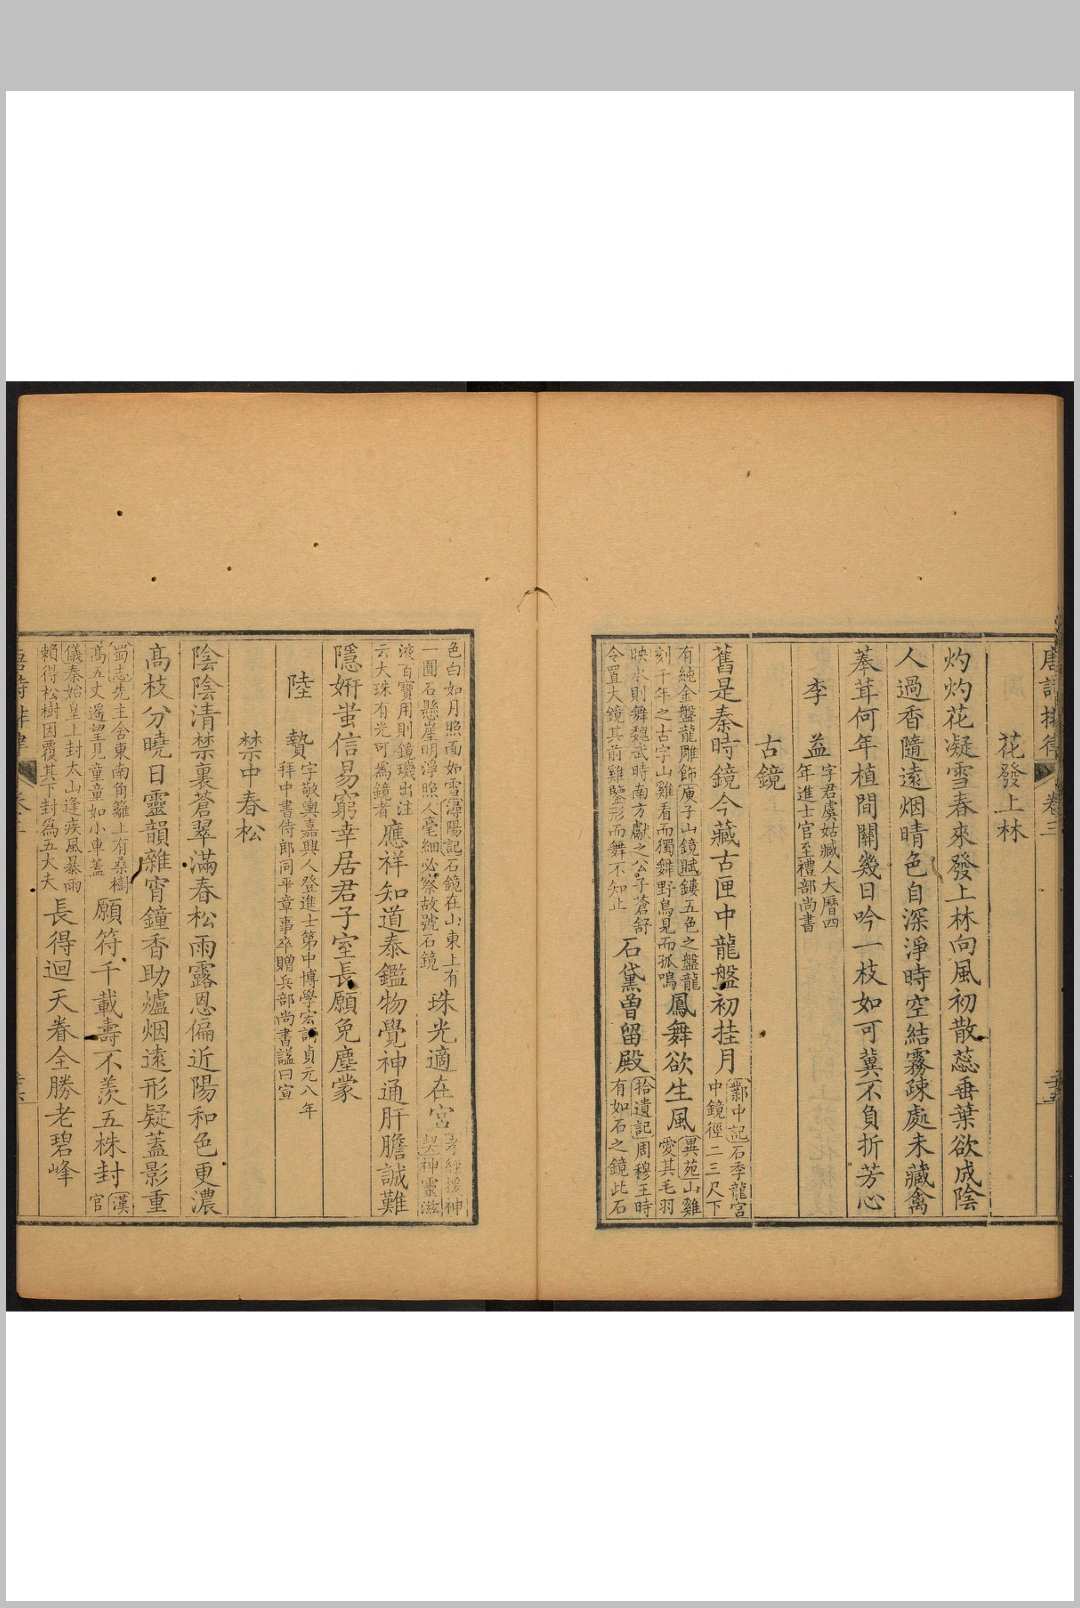 花發上林
灼灼花凝雪春來發上林向風初散蕊垂葉欲成陰
人過香隨遠烟晴色自深淨時空結霧疎處未藏禽
葑茸何年植間關幾日吟一枝如可冀不負折芳心
李益字君虞姑臧人大曆四
年進士官至禮部尚書
古鏡
舊是秦時鏡今藏古匣中龍盤初挂月鄴中記石季龍宮
中鏡徑二三尺下
有純金盤龍雕飾庾子山鏡賦鏤五色之盤龍
刻千年之古字山雞看而獨舞野鳥見而孤鳴
鳳舞欲生風異苑山雞
愛其毛羽
映水則舞魏武時南方獻之公子蒼舒
令置大鏡其前雞鑒形而舞不知止
石黛曽留殿拾遺記周穆王時
有如石之鏡此石
色白如月照面如雪潯陽記石鏡在山東上有
一圓石懸崖明淨照人毫細必察故號石鏡
珠光適在宮孝經援神
契神靈滋
液百寶用則鏡璣出注
云大珠有光可為鏡者
應祥知道泰鑑物覺神通肝膽誠難
隱姸蚩信易窮幸居君子室長願免塵蒙
陸贄字敬輿嘉興人登進士第中博學宏詞貞元八年
拜中書侍郎同平章事卒贈兵部尚書諡曰宣
禁中春松
陰陰清禁裏蒼翠滿春松雨露恩偏近陽和色更濃
髙枝分曉日靈韻雜宵鐘香助爐烟遠形疑蓋影重
蜀志先主舍東南角籬上有桑樹
髙五丈遙望見童童如小車蓋
願符千載壽不羨五株封漢
官
儀秦始皇上封太山逢疾風暴雨
賴得松樹因覆其下封爲五大夫
長得迴天眷全勝老碧峰